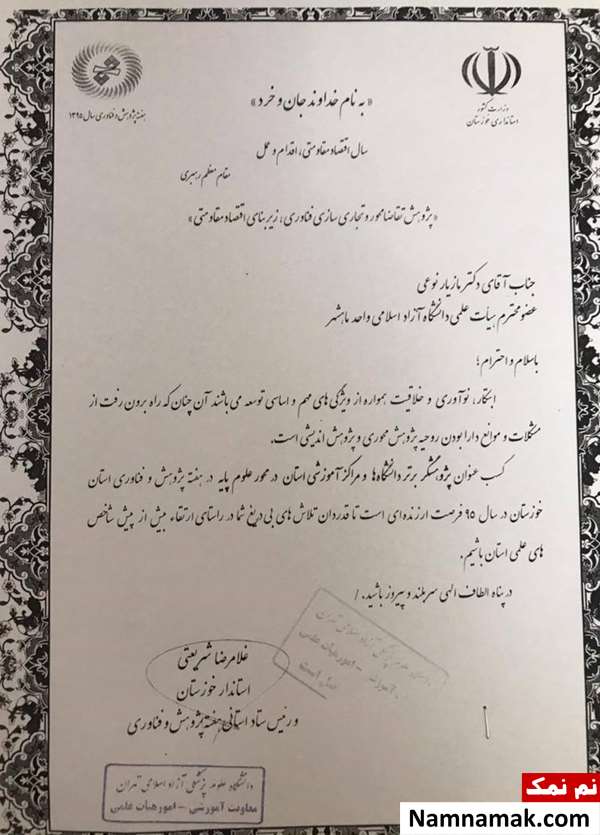 وزارت کشور
استانداری خوزستان
هفته پژوهش و فناوری سال ۱۳۹۵
«به نام خداوند جان و خرد»
سال اقتصاد مقاومتی، اقدام و عمل
مقام معظم رهبری
«پژوهش تقاضا محور و تجاری سازی فناوری، زیربنای اقتصاد مقاومتی»
جناب آقای دکتر مازیار نوعی
عضو محترم هیأت علمی دانشگاه آزاد اسلامی واحد ماهشهر
باسلام و احترام؛
ابتکار، نوآوری و خلاقیت همواره از ویژگی های مهم و اساسی توسعه می باشند آن چنان که راه برون رفت از
مشکلات و موانع دارا بودن روحیه پژوهش محوری و پژوهش اندیشی است.
کسب عنوان پژوهشگر برتر دانشگاه ها و مراکز آموزشی استان در محور علوم پایه در هفته پژوهش و فناوری استان
خوزستان در سال ۹۵ فرصت ارزنده ای است تا قدردان تلاش های بی دریغ شما در راستای ارتقاء بیش از پیش شاخص
های علمی استان باشیم.
در پناه الطاف الهی سربلند و پیروز باشید. /
دانشگاه علوم پزشکی آزاد اسلامی تهران
معاونت آموزشی - امور هیات علمی
اصل است
غلامرضا شریعتی
استاندار خوزستان
و رئیس ستاد استانی هفته پژوهش و فناوری
دانشگاه علوم پزشکی آزاد اسلامی تهران
معاونت آموزشی - امور هیات علمی
نم نمک
Namnamak.com